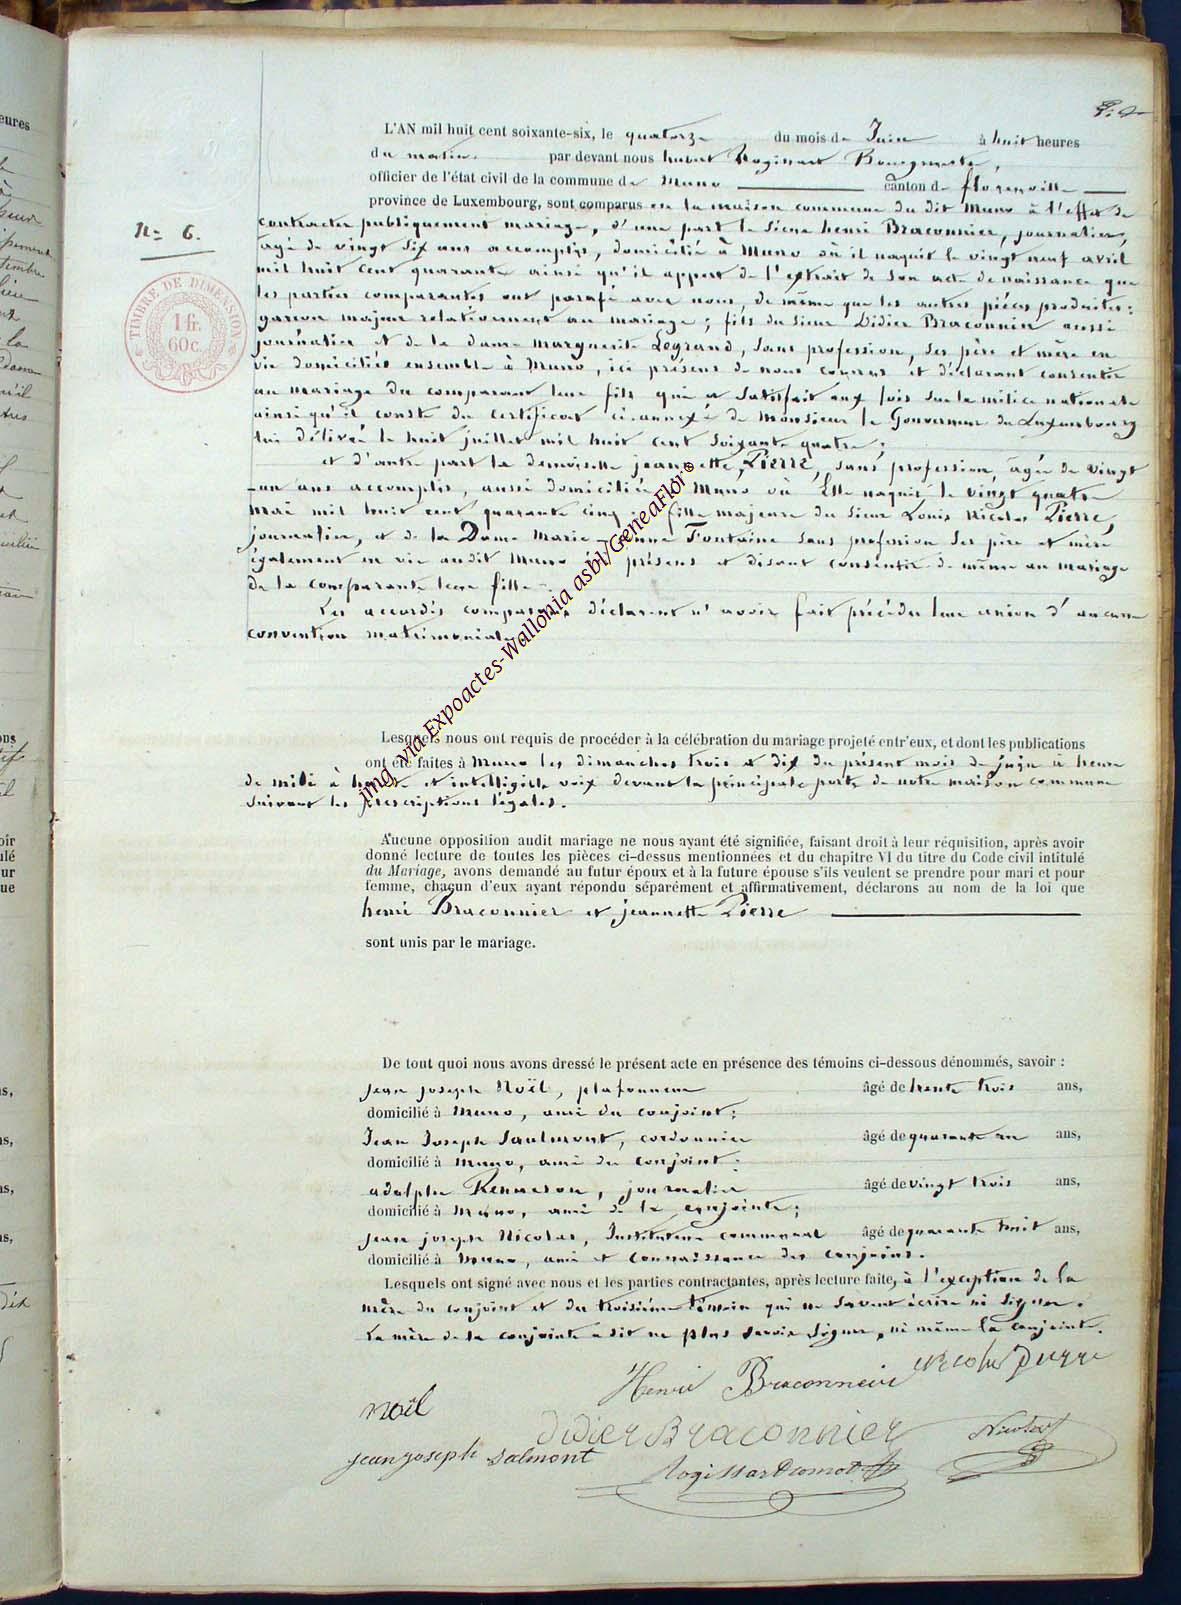 L'AN mil huit cent soixante-six, le quatorze du mois de Juin à huit heures
du matin par devant nous hubert Rogissart Bourgmestre,
officier de l'état civil de la commune de Muno canton de florenville
province de Luxembourg, sont comparus en la maison commune du dit Muno à l'effet de
contracter publiquement mariage, d'une part le sieur henri Braconnier, journalier,
agé de vingt six ans accomplis, domicilié à Muno où il naquit le vingt neuf avril
mil huit cent quarante ainsi qu'il appert de l'extrait de son acte de naissance que
les parties comparantes ont parafé avec nous, de même que les autres pièces produites:
garçon majeur relativement au mariage; fils du sieur Didier Braconnier aussi
journalier et de la dame marguerite Legrand, sans profession, ses père et mère en
vie domiciliés ensemble à Muno, ici présens de nous connus et déclarant consentir
au mariage du comparant leur fils qui a satisfait aux lois sur la milice nationale
ainsi qu'il conste du certificat ci-annexé de Monsieur le Gouverneur du Luxembourg
lui délivré le huit juillet mil huit cent soixante quatre;
et d'autre part la demoiselle jeannette Pierre, sans profession, âgée de vingt
-un ans accomplis, aussi domiciliée à Muno où Elle naquit le vingt quatre
Mai mil huit cent quarante cinq; fille majeure du sieur Louis Nicolas Pierre,
journalier, et de la Dame Marie-jeanne Fontaine sans profession ses père et mère
également en vie audit Muno ici présens et disant consentir de même au mariage
de la comparante leur fille.
Les accordés comparans déclarent n'avoir fait précéder leur union d'aucune
convention matrimoniale.
N° 6.
TIMBRE DE DIMENSION
1 fr.
60c.
img via Expoactes-Wallonia asbl/GeneaFlor®
Lesquels nous ont requis de procéder à la célébration du mariage projeté entr'eux, et dont les publications
ont été faites à Muno les dimanches trois et dix du présent mois de juin à heure
de midi à haute et intelligible voix devant la principale porte de notre maison commune
suivant les prescriptions légales.
Aucune opposition audit mariage ne nous ayant été signifiée, faisant droit à leur réquisition, après avoir
donné lecture de toutes les pièces ci-dessus mentionnées et du chapitre VI du titre du Code civil intitulé
du Mariage, avons demandé au futur époux et à la future épouse s'ils veulent se prendre pour mari et pour
femme, chacun d'eux ayant répondu séparément et affirmativement, déclarons au nom de la loi que
henri Braconnier et jeannette Pierre
sont unis par le mariage.
De tout quoi nous avons dressé le présent acte en présence des témoins ci-dessous dénommés, savoir :
jean joseph Noël, plafonneur âgé de trente trois ans,
domicilié à Muno, ami du conjoint;
Jean Joseph Saulmont, cordonnier âgé de quarante un ans,
domicilié à Muno, ami du conjoint;
adolphe Renneson, journalier âgé de vingt trois ans,
domicilié à Muno, ami de la conjointe;
jean joseph Nicolas, Instituteur communal âgé de quarante huit ans,
domicilié à Muno, ami et connaissance des conjoins.
Lesquels ont signé avec nous et les parties contractantes, après lecture faite, à l'exception de la
mère du conjoint et du troisième témoin qui ne savent écrire ni signer.
La mère de la conjointe a dit ne plus savoir signer, ni même la conjointe.
Henri Braconneir Nicolas pierre
noël
didier Braconnier Nicolas
jean joseph Salmont